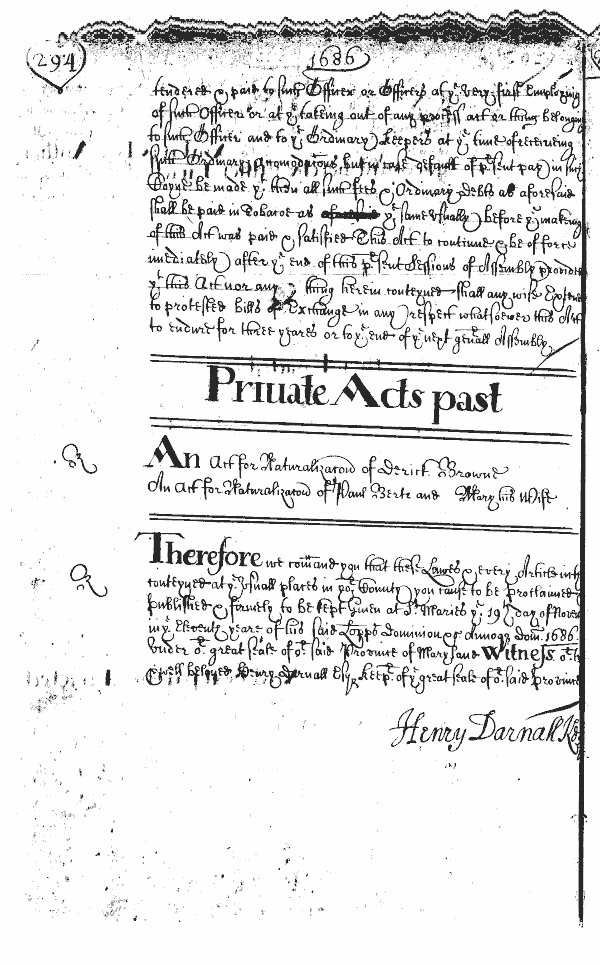 294
1686
tendered & paid to such Officer or Officers at ye very first Employing
of such Officer or at ye taking out of any process act or thing belonging
to such Officer and to ye Ordinary Keepers at ye time of receiveing
such Ordinary Accomodacons, but in case default of prsent pay in such
Coyne be made yt then all such fees & Ordinary debts as aforesaid
shall be paid in Tobacoe as ye same usually before ye making
of this Act was paid & satisfied This Act to continue & be of force
imediately after ye end of this prsent Sessions of Assembly provided
yt this Act nor any thing herein conteyned shall any wise Extend
to protested bills of Exchange in any respect whatsoever this Act
to endure for three yeares or to ye end of ye next genall Assembly
Priuate Acts past
An Act for Naturalizacon of Derick Browne
An Act for Naturalizacon of Paul Berte and Mary his Wife
Therefore we comand you that these Lawes & every Article in
conteyned at ye usuall places in yor County you cause to be proclaimed
published & formely to be kept given at St Maries ye 19th day of Novem
in ye Eleventh yeare of his said Lopps Dominion &c Annoq Dom. 1686.
under or great seale of or said Province of Maryland Witness or
welbeloved Henry Darnall Esqr keepr of ye great seale of or said Province
Henry Darnall